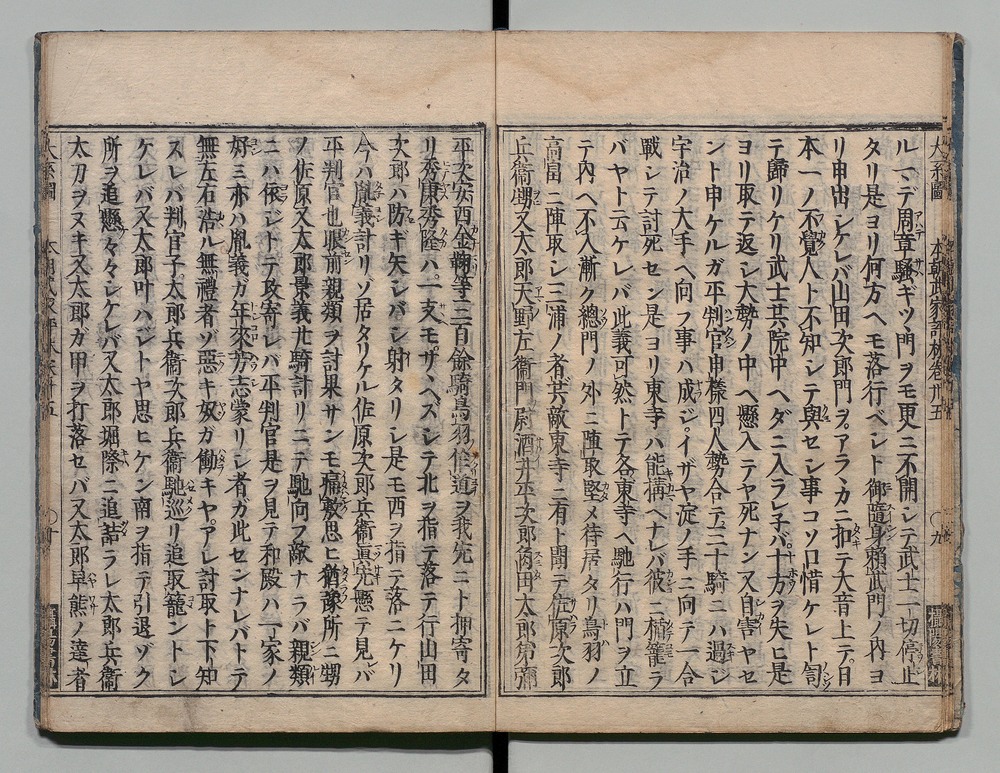 ルヽデ周章騒ギツヽ門ヲモ更ニ不開シテ武士一切停止
タリ是ヨリ何方ヘモ落行ベシト御随身頼武門ノ内ヨ
リ申出シケレバ山田次郎門ヲアラヽカニ扣テ大音上テ日
本一ノ不覺人ト不知シテ與セシ事コソ口惜ケレト訇
テ歸リケリ武士共院中ヘダニ入ラレ子バ十方ヲ失ヒ是
ヨリ取テ返シ大勢ノ中ヘ懸入テヤ死ナン又自害ヤセ
ント申ケルガ平判官申樣四人勢合テ三十騎ニハ過ジ
宇治ノ大手ヘ向フ事ハ成ジイザヤ淀ノ手ニ向テ一合
戰シテ討死セン是ヨリ東寺ハ能構ヘナレバ彼ニ楯籠ラ
バヤト云ケレバ此義可然トテ各東寺ヘ馳行ハ門ヲ立
テ内ヘ不入漸ク總門ノ外ニ陣取堅メ待居タリ鳥羽ノ
高畠ニ陣取シ三浦ノ者共敵東寺ニ有ト聞テ佐原次郎
兵衛甥又太郎天野左衛門尉酒井平次郎角田太郎弟彌
平次安西金鞠等三百餘騎鳥羽作道ヲ我先ニト押寄タ
リ秀康秀隆ハ一支モザヽヘズシテ北ヲ指テ落テ行山田
次郎ハ防ギ矢シバシ射タリシ是モ西ヲ指テ落ニケリ
今ハ胤義計リゾ居タリケル佐原次郎兵衛真先懸テ見バ
平判官也眼前親類ヲ討果サンモ痛敷思ヒ猶豫所ニ甥
ノ佐原又太郎景義廿騎計リニテ馳向フ敵ナラバ親類
ニハ依ジトテ攻寄レバ平判官是ヲ見テ和殿ハ一家ノ
好ミ亦ハ胤義ガ年來芳志蒙リシ者ガ此センナレバトテ
無左右浩ル無禮者ゾ惡キ奴ガ働キヤアレ討取ト下知
スレバ判官子太郎兵衛次郎兵衛馳巡リ追取籠ントシ
ケレバ又太郎叶ハジトヤ思ヒケン南ヲ指テ引退ゾク
所ヲ追懸々々シケレバ又太郎堀際ニ追詰ラレ太郎兵衛
太刀ヲヌキ又太郎ガ甲ヲ打落セバ又太郎早熊ノ達者